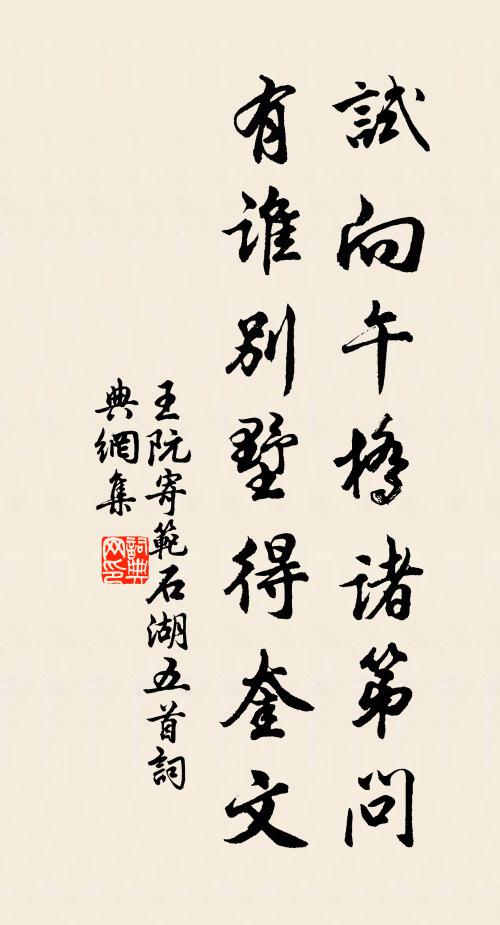 試向午橋諸第問
有誰別墅得奎文
王阮寄範石湖五首詞
典網集
詞典網印